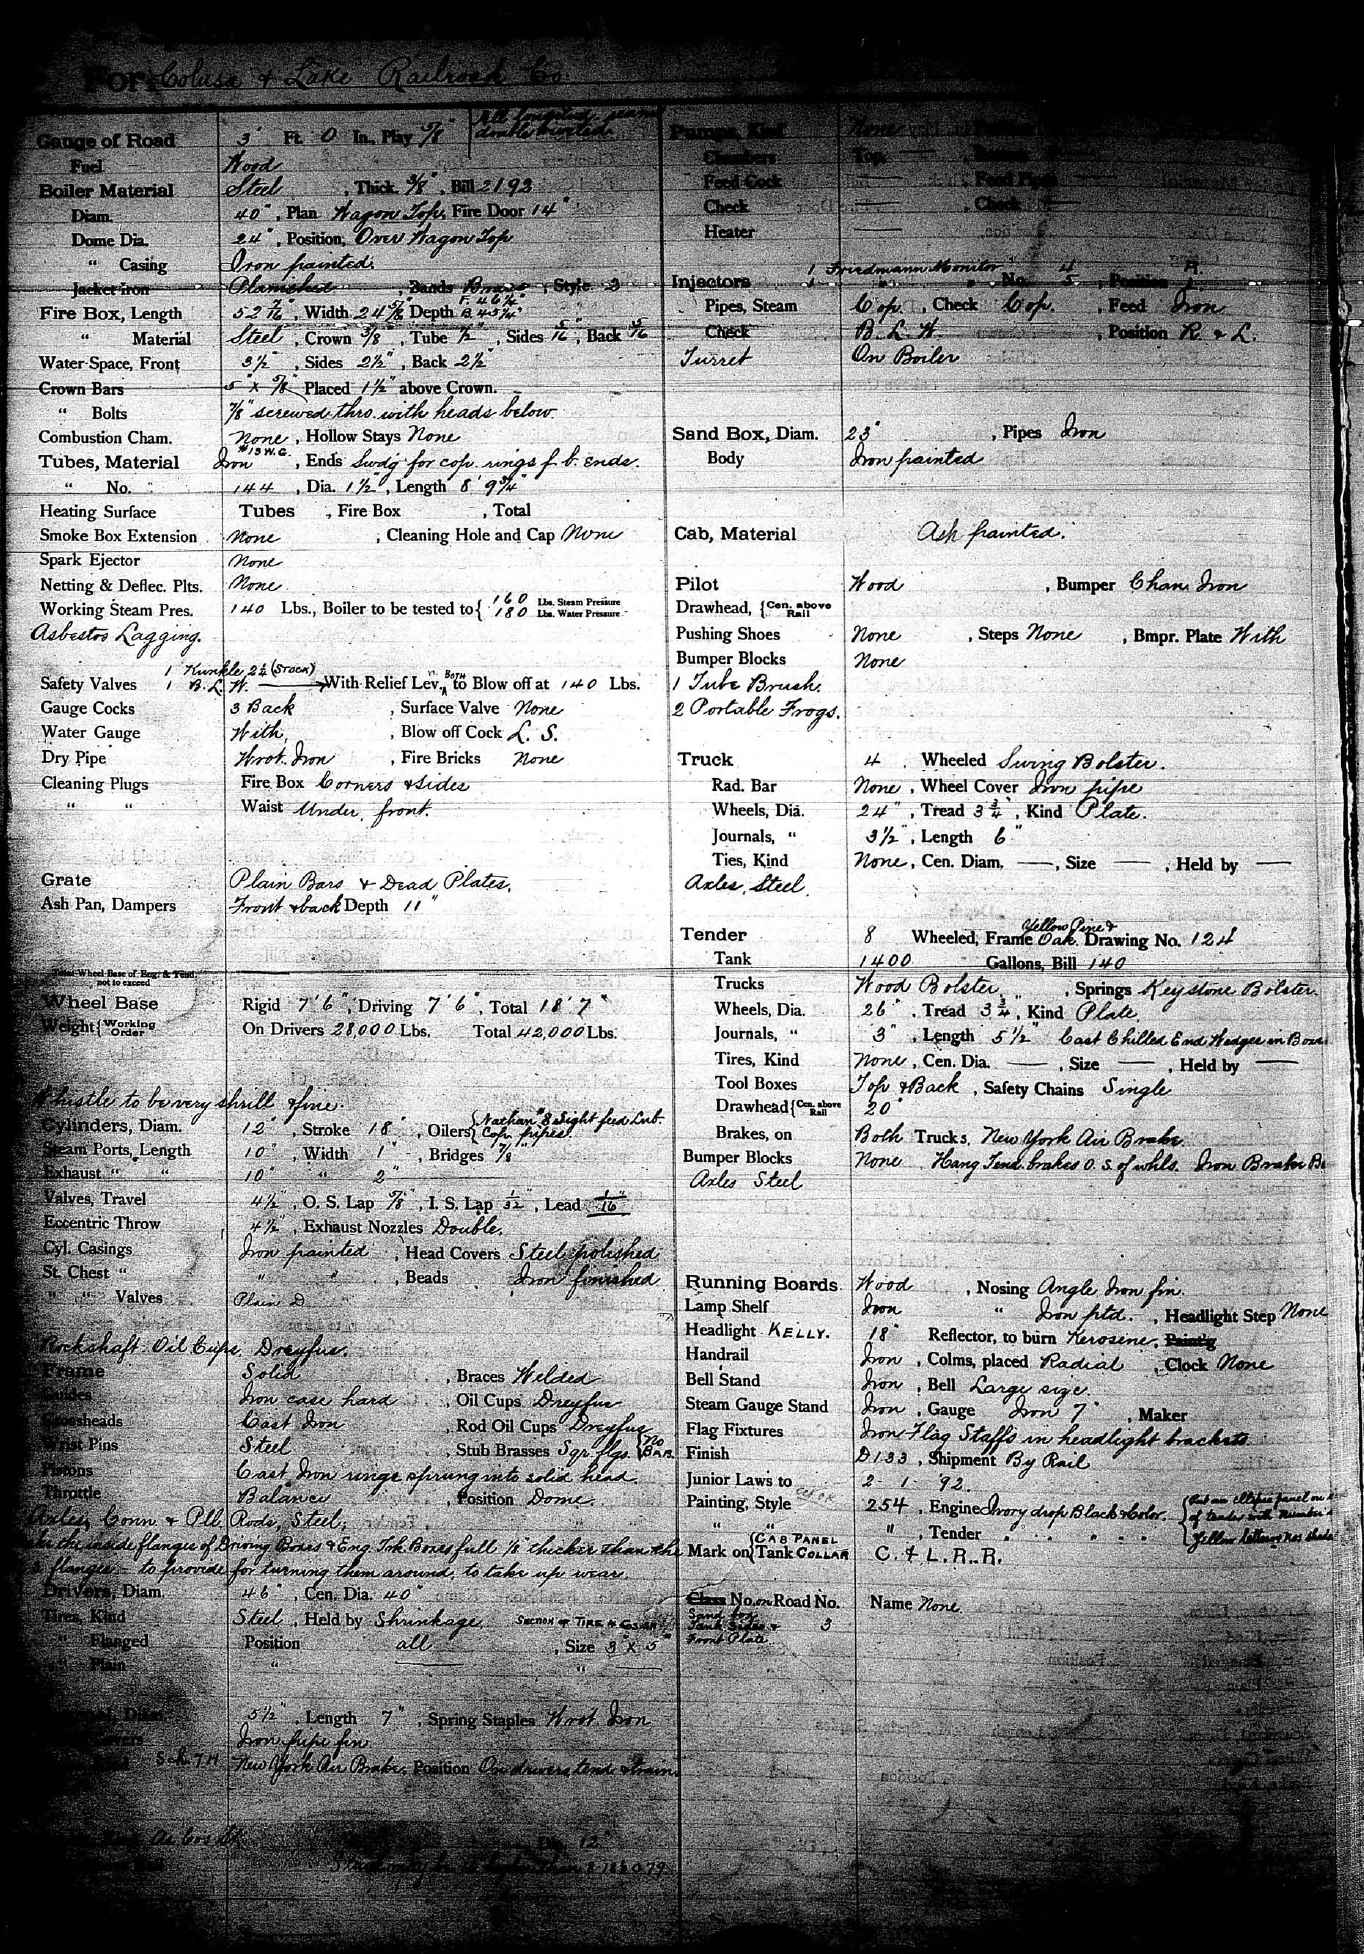 For Colusa & Lake Railroad Co.
Gauge of Road 3 Ft. 0 In., Play 5/8"
double riveted
Fuel Wood
Boiler Material Steel , Thick. 3/8" , Bill 2193
Diam. 40" , Plan Wagon Top, Fire Door 14"
Dome Dia. 24" , Position, Over Wagon Top
" Casing Iron painted.
Jacket iron Planished , Bands Brass , Style 3
Fire Box, Length 52 7/16" , Width 24 5/8" Depth F. 46 1/4" B. 45 1/4"
" Material Steel , Crown 3/8" , Tube 1/2" , Sides 5/16" , Back 5/16
Water Space, Front 3 1/2" , Sides 2 1/2" , Back 2 1/2"
Crown Bars 5" x 5/8" Placed 1 1/2" above Crown.
" Bolts 7/8" screwed thro. with heads below.
Combustion Cham. None , Hollow Stays None
Tubes, Material Iron #13 W.G. , Ends Swdg for cop. rings f. b. ends.
" No. 144 , Dia. 1 1/2" , Length 8' 9 3/4"
Heating Surface Tubes , Fire Box , Total
Smoke Box Extension None , Cleaning Hole and Cap None
Spark Ejector None
Netting & Deflec. Plts. None
Working Steam Pres. 140 Lbs., Boiler to be tested to { 160 Lbs. Steam Pressure 180 Lbs. Water Pressure
Asbestos Lagging.
1 Kunkle 2 1/4 (Stock)
Safety Valves 1 B. L. W. With Relief Lev. in both to Blow off at 140 Lbs.
Gauge Cocks 3 Back , Surface Valve None
Water Gauge With, , Blow off Cock L. S.
Dry Pipe Wrot. Iron , Fire Bricks None
Cleaning Plugs Fire Box Corners & Sides
" " Waist Under, front.
Grate Plain Bars & Dead Plates.
Ash Pan, Dampers Front & back Depth 11"
Total Wheel Base of Eng. & Tend. not to exceed
Wheel Base Rigid 7'6", Driving 7'6", Total 18'7"
Weight { Working Order On Drivers 28,000 Lbs. Total 42,000 Lbs.
Whistle to be very shrill & fine.
Cylinders, Diam. 12" , Stroke 18" , Oilers { Nathan #8 Sight feed Lub. Cop. pipes.
Steam Ports, Length 10" , Width 1" , Bridges 7/8"
Exhaust " " 10" " 2"
Valves, Travel 4 1/2", O. S. Lap 5/8", I. S. Lap 1/32", Lead 1/16"
Eccentric Throw 4 1/2" , Exhaust Nozzles Double.
Cyl. Casings Iron painted , Head Covers Steel polished
St. Chest " " " , Beads Iron finished
" " Valves Plain D
Rockshaft Oil Cups Dreyfus.
Frame Solid , Braces Welded
Guides Iron case hard , Oil Cups Dreyfus
Crossheads Cast Iron , Rod Oil Cups Dreyfus
Wrist Pins Steel , Stub Brasses Sqr. flgs. { No Bab.
Pistons Cast Iron rings sprung into solid head.
Throttle Balance , Position Dome.
Axles, Conn & Pll. Rods, Steel;
the inside flanges of Driving Boxes & Eng. Trk Boxes full 1/8" thicker than the
flanges - to provide for turning them around, to take up wear.
Drivers, Diam. 46" , Cen. Dia. 40"
Tires, Kind Steel , Held by Shrinkage. Section of Tire
" Flanged Position all , Size 3" x 5"
" Plain " "
Diam. 5 1/2" , Length 7" , Spring Staples Wrot. Iron
Iron pipe fin
New York Air Brake, Position On drivers tend & train.
12"
Pumps, Kind None
Chambers Top
Feed Cock , Feed Pipes
Check , Check
Heater
1 Friedmann Monitor 4 R.
Injectors 1 " " , No. 5 , Position L
Pipes, Steam Cop. , Check Cop. , Feed Iron
Check B. L. W. , Position R. & L.
Turret On Boiler
Sand Box, Diam. 23" , Pipes Iron
Body Iron painted
Cab, Material Ash painted.
Pilot Wood , Bumper Chan. Iron
Drawhead, { Cen. above Rail
Pushing Shoes None , Steps None , Bmpr. Plate With
Bumper Blocks None
1 Tube Brush.
2 Portable Frogs.
Truck 4 Wheeled Swing Bolster.
Rad. Bar None , Wheel Cover Iron pipe
Wheels, Dia. 24" , Tread 3 3/4 , Kind Plate.
Journals, " 3 1/2" , Length 6"
Ties, Kind None , Cen. Diam. — , Size — , Held by —
Axles, Steel.
Tender 8 Wheeled, Frame Yellow Pine & Oak. Drawing No. 124
Tank 1400 Gallons, Bill 140
Trucks Wood Bolster , Springs Keystone Bolster.
Wheels, Dia. 26" , Tread 3 3/4", Kind Plate.
Journals, " 3" , Length 5 1/2" Cast Chilled End Wedges in Boxes
Tires, Kind None , Cen. Dia. — , Size — , Held by —
Tool Boxes Top & Back , Safety Chains Single
Drawhead { Cen. above Rail 20"
Brakes, on Both Trucks, New York Air Brake.
Bumper Blocks None Hang Tend. brakes O. S. of whls. Iron Brake
Axles Steel
Running Boards Wood , Nosing Angle Iron fin.
Lamp Shelf Iron " Iron ptd. , Headlight Step None
Headlight KELLY. 18" Reflector, to burn Kerosene. Paint'g
Handrail Iron , Colms, placed Radial , Clock None
Bell Stand Iron , Bell Large size.
Steam Gauge Stand Iron , Gauge Iron 7" , Maker
Flag Fixtures Iron Flag Staffs in headlight brackets
Finish D133 , Shipment By Rail
Junior Laws to 2 - 1 - '92.
Painting, Style 254 , Engine Ivory drop Black & Color. { Put an ellipse panel on of tender with number
" " " , Tender " " " " Yellow lettering not shaded
Mark on { CAB PANEL Tank COLLAR C. & L. R. R.
Class No. on Road No. 3 Name None
Sand box
Tank Sides &
Front Plate